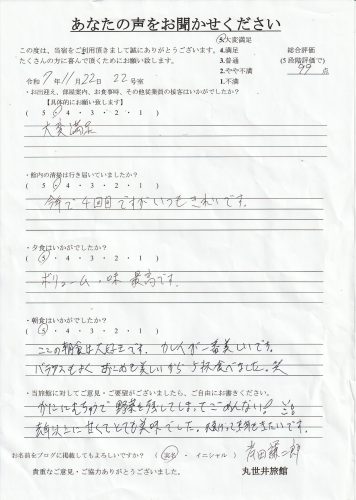 あなたの声をお聞かせください
この度は、当宿をご利用頂きまして誠にありがとうございます。
たくさんの方に喜んで頂くためにお願い致します。
5.大変満足
4.満足
3.普通
2.やや不満
1.不満
総合評価
(5段階評価で)
99 点
令和 7年 11月 22日 22号室
・お出迎え、部屋案内、お食事時、その他従業員の接客はいかがでしたか?
【具体的にお願い致します】
( 5 ・ 4 ・ 3 ・ 2 ・ 1 )
大変満足
・館内の清掃は行き届いていましたか?
( 5 ・ 4 ・ 3 ・ 2 ・ 1 )
今年で4回目ですがいつもきれいです。
・夕食はいかがでしたか?
( 5 ・ 4 ・ 3 ・ 2 ・ 1 )
ボリューム・味 最高です。
・朝食はいかがでしたか?
( 5 ・ 4 ・ 3 ・ 2 ・ 1 )
ここの朝食は大好きです。カレイが一番美しいです。
バランスもよく おこめも美しいから 5杯食べました。笑
・当旅館に対してご意見・ご要望がございましたら、ご自由にお書きください。
かににむちゅうで 野菜を残してしまってごめんない!
去年以上に甘くてとても美味でした。
お名前をブログに掲載してもよろしいですか? ( 実名 ・ イニシャル )
貴重なご意見・ご協力ありがとうございました。
丸世井旅館